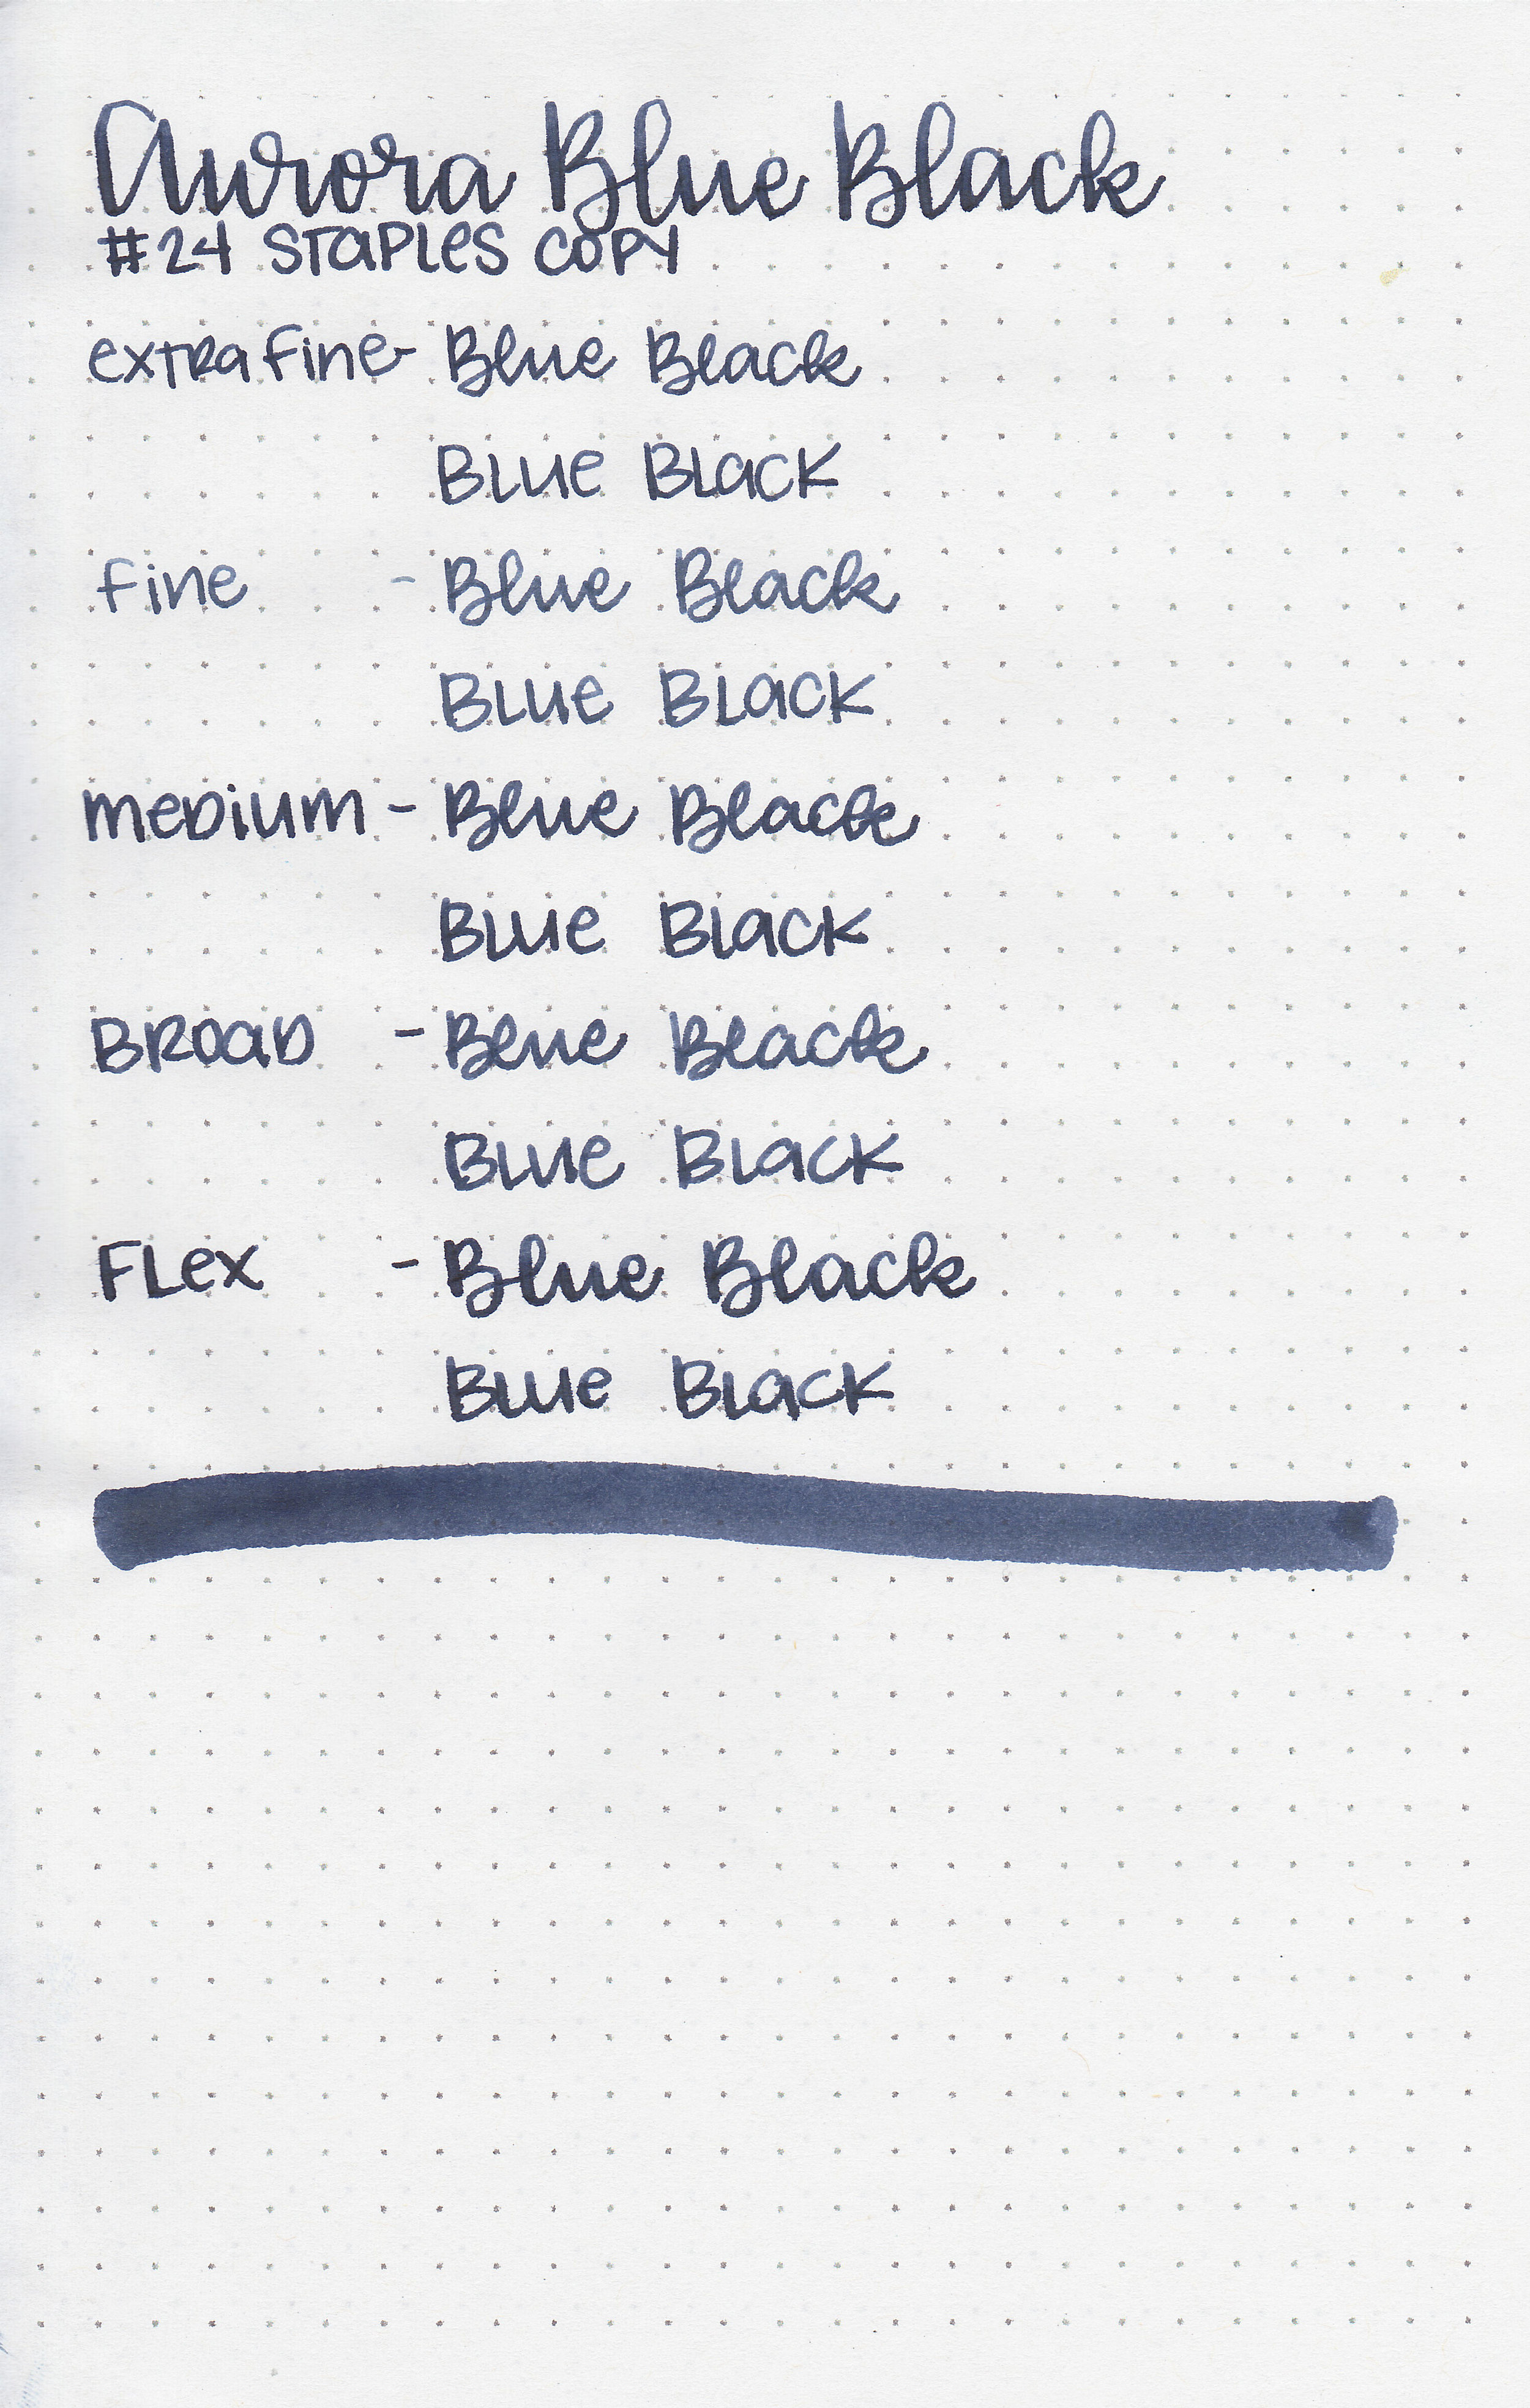 Aurora Blue Black
#24 Staples Copy
extra fine - Blue Black
Blue Black
fine - Blue Black
Blue Black
medium - Blue Black
Blue Black
Broad - Blue Black
Blue Black
Flex - Blue Black
Blue Black